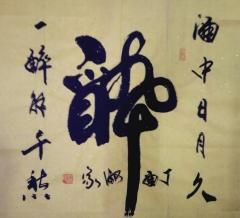 酒中日月久
醉
一醉解千愁
丁酉